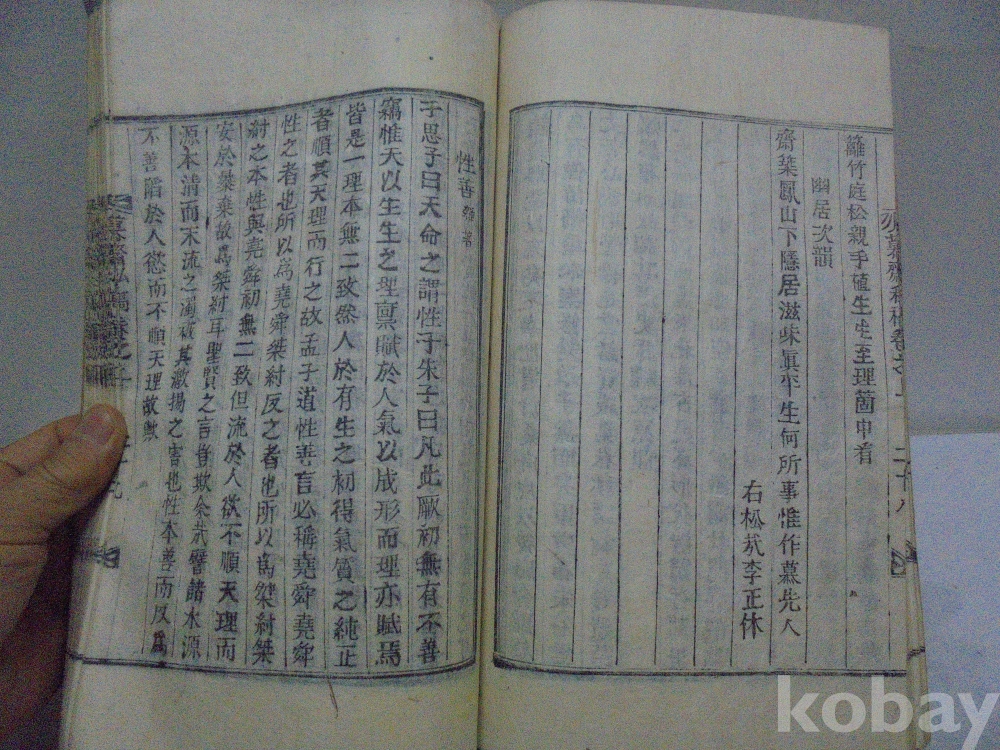 籬竹庭松親手植生生至理箇中看
幽居次韻
齋築鳳山下隱居滋味眞平生何所事惟作慕先人
右松 李正休
性善 雜著
子思子曰天命之謂性子朱子曰凡此厥初無有不善
竊惟天以生生之理禀賦於人氣以成形而理亦賦焉
皆是一理本無二致然人於有生之初得氣質之純正
者順其天理而行之故孟子道性善言必稱堯舜堯舜
性之者也所以爲堯舜桀紂反之者也所以爲桀紂桀
紂之本性與堯舜初無二致但流於人欲不順天理而
安於暴棄故爲桀紂耳聖賢之言豈欺余哉譬諸水源
源本清而末流之濁 其激揚之害也性本善而反爲
不善陷於人慾而不順天理故歟
慕齋私稿卷之
二十八
二十九
kobay